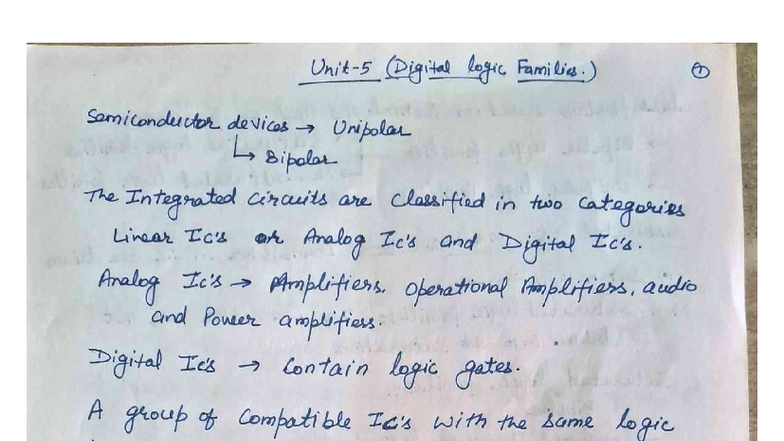 Unit-5 (Digital logic Families.)
1
Semiconductor devices → Unipolar
↳ Bipolar
The Integrated circuits are classified in two categories
Linear Ic's or Analog Ic's and Digital Ic's.
Analog Ic's → Amplifiers, operational Amplifiers, audio
and Power amplifiers.
Digital Ic's → contain logic gates.
A group of compatible Ic's with the same logic